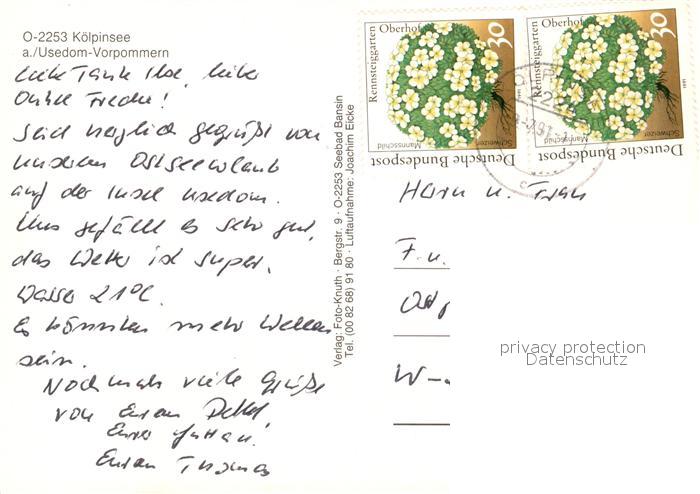 O-2253 Kölpinsee
a./Usedom-Vorpommern
Liebe Tante Ilse, lieber
Onkel Friedel!
Seid herzlich gegrüßt von
unserem Ostseeurlaub
auf der Insel Usedom.
Uns gefällt es sehr gut,
das Wetter ist super.
Wasser 21°C.
Es könnten mehr Wellen
sein.
Nochmals viele Grüße
von Euren
Eure Juttan!
Euren Thomas
Verlag: Foto-Knuth · Bergstr. 9 · O-2253 Seebad Bansin
Tel. (00 82 68) 91 80 · Luftaufnahme: Joachim Eicke
Rennsteiggarten Oberhof
30
Schweizer
Mannsschild
1991
Deutsche Bundespost
Rennsteiggarten Oberhof
30
Schweizer
Mannsschild
1991
Deutsche Bundespost
Herrn u. Frau
F. u.
W-
privacy protection
Datenschutz